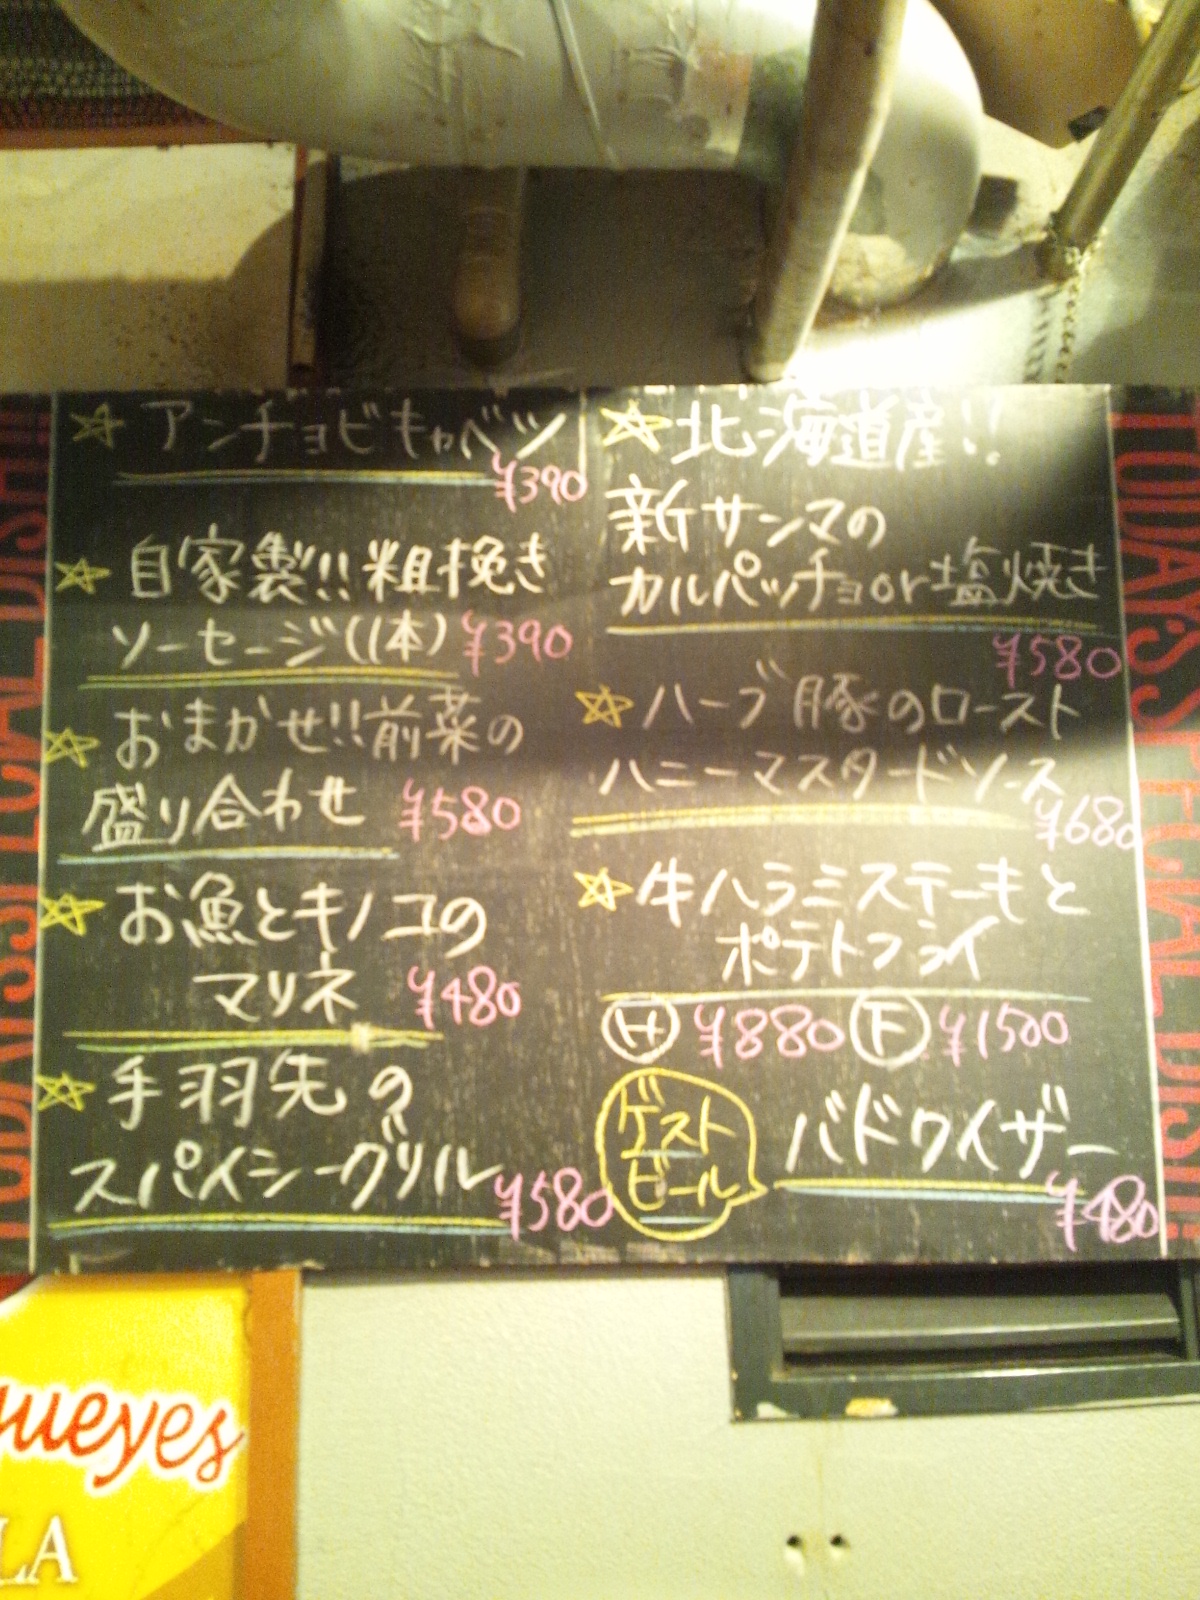 アンチョビキャベツ
¥390
自家製!!粗挽き
ソーセージ(1本) ¥390
おまかせ!!前菜の
盛り合わせ ¥580
お魚とキノコの
マリネ ¥480
手羽先の
スパイシーグリル ¥580
北海道産!!
新サンマの
カルパッチョor塩焼き
¥580
ハーブ豚のロースト
ハニーマスタードソース
¥680
牛ハラミステーキと
ポテトフライ
H ¥880 F ¥1500
ゲスト
ビール
バドワイザー
¥480
TODAY'S SPECIAL DISH!!
TODAY'S SPECIAL DISH!!
ueyes
LA